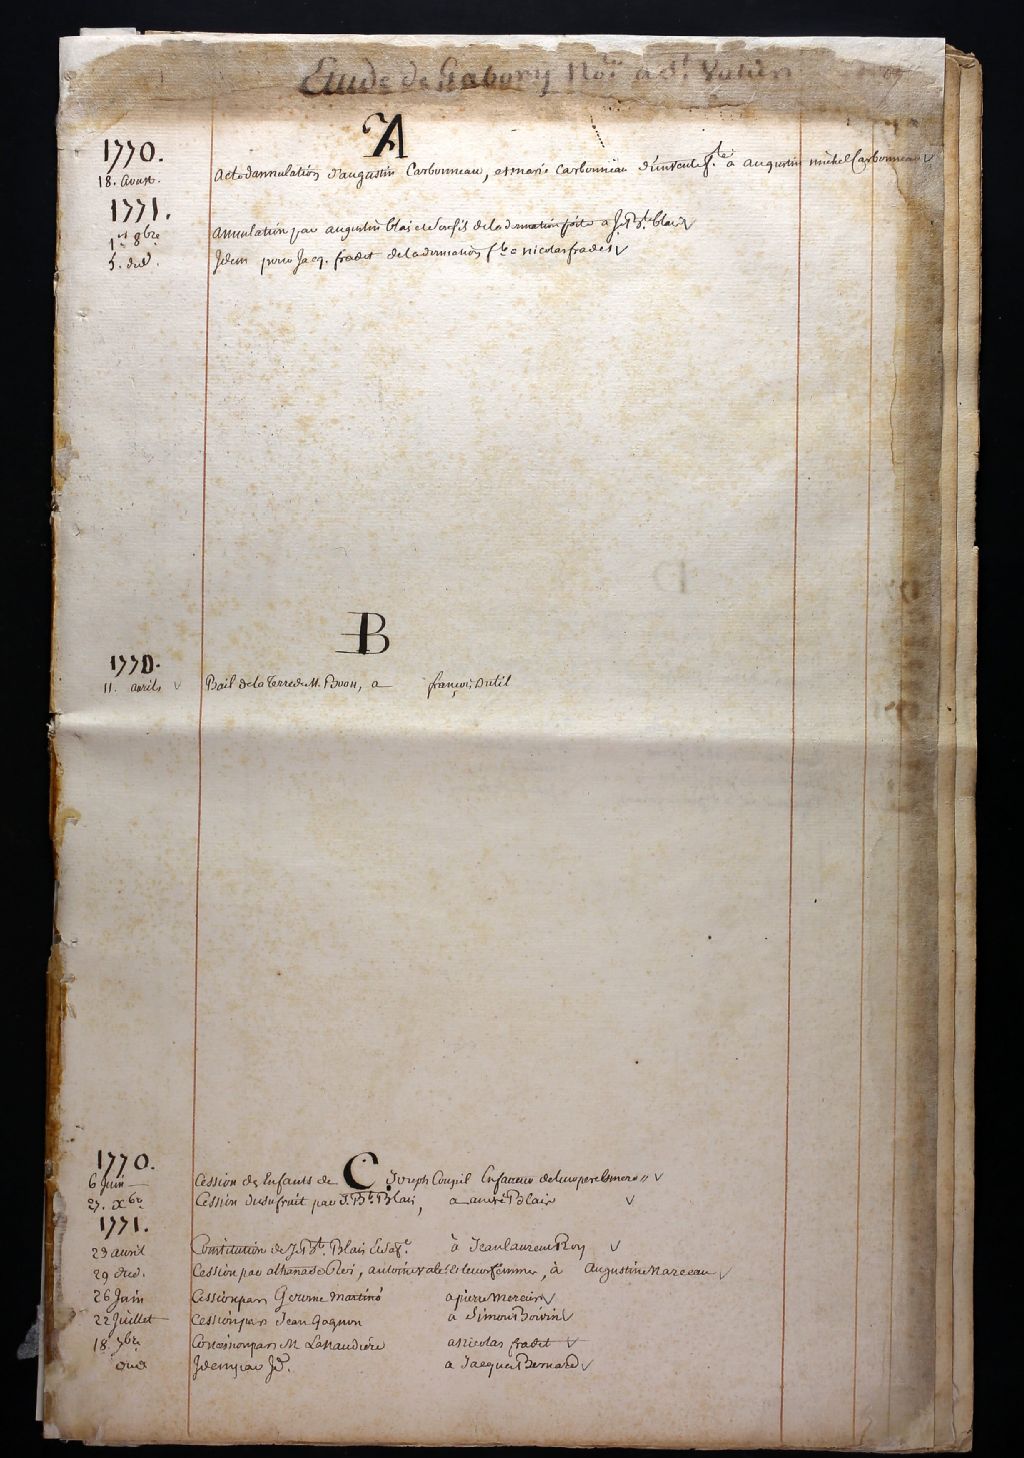 Etude de Gabory No.re a St. Valier
A
1770.
18. Aoust. Acte d'annulation d'augustin Carbonneau, et marie Carbonneau d'une vente fte. a augustin michel Carbonneau
1771.
1er 8bre. Annulation par augustin blais et ses fils de la donnation faite a J. Bte. blais
5. dud. Idem par Jacq. fradet de la donnation fte a nicolas frades
B
1770.
11. avrils Bail de la Terre de M. , a françois Dutil
C.
1770.
6 juin Cession des Enfants de Joseph Coupil En faveur de leur pere & mere
27. Xbre Cession dusufruit par J. Bte. Blais, a andré Blais
1771.
23 avril Constitution de J. Bte. Blais & sa fe. à Jean laurent Roy
29 dud. Cession par athanase Roi, antoine vale & leurs fémmes, à Augustin Narceau
26 Juin Cession par Gerome Martino a pierre Mercier
22 Juillet Cession par Jean Gagnon a Simon Boivin
18. 7bre Concession par M. Lanaudiére a Nicolas fradet
dud Idem par Id. a Jacques Bernard